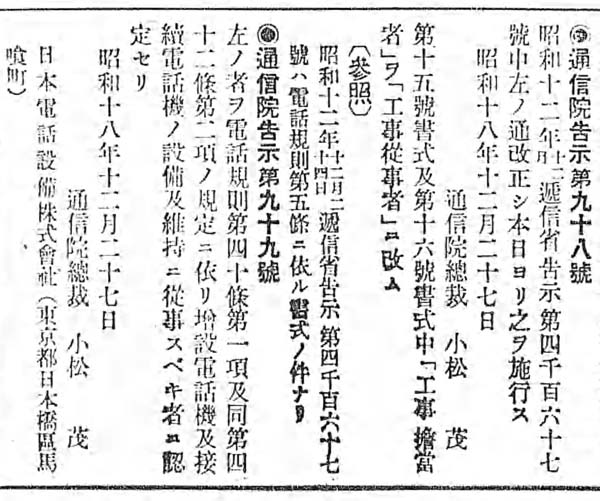 ◉通信院告示第九十八號
昭和十二年十二月遞信省告示第四千百六十七
號中左ノ通改正シ本日ヨリ之ヲ施行ス
昭和十八年十二月二十七日
通信院總裁 小松 茂
第十五號書式及第十六號書式中「工事擔當
者」ヲ「工事從事者」ニ改ム
〔參照〕
昭和十二年十二月二十四日遞信省告示第四千百六十七
號ハ電話規則第五條ニ依ル書式ノ件ナリ
◉通信院告示第九十九號
左ノ者ヲ電話規則第四十條第一項及同第四
十二條第二項ノ規定ニ依リ增設電話機及接
續電話機ノ設備及維持ニ從事スベキ者ニ認
定セリ
昭和十八年十二月二十七日
通信院總裁 小松 茂
日本電話設備株式會社(東京都日本橋區馬
喰町)